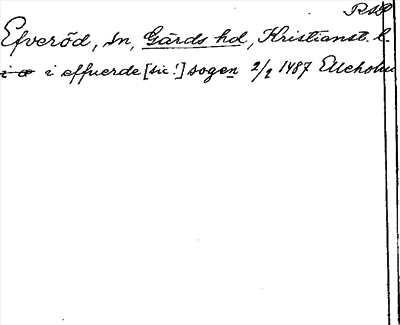 RAP
Efveröd, sn, Gärds hd, Kristianst. l.
i effuerde [sic!] sogen 2/2 1487 Elleholm